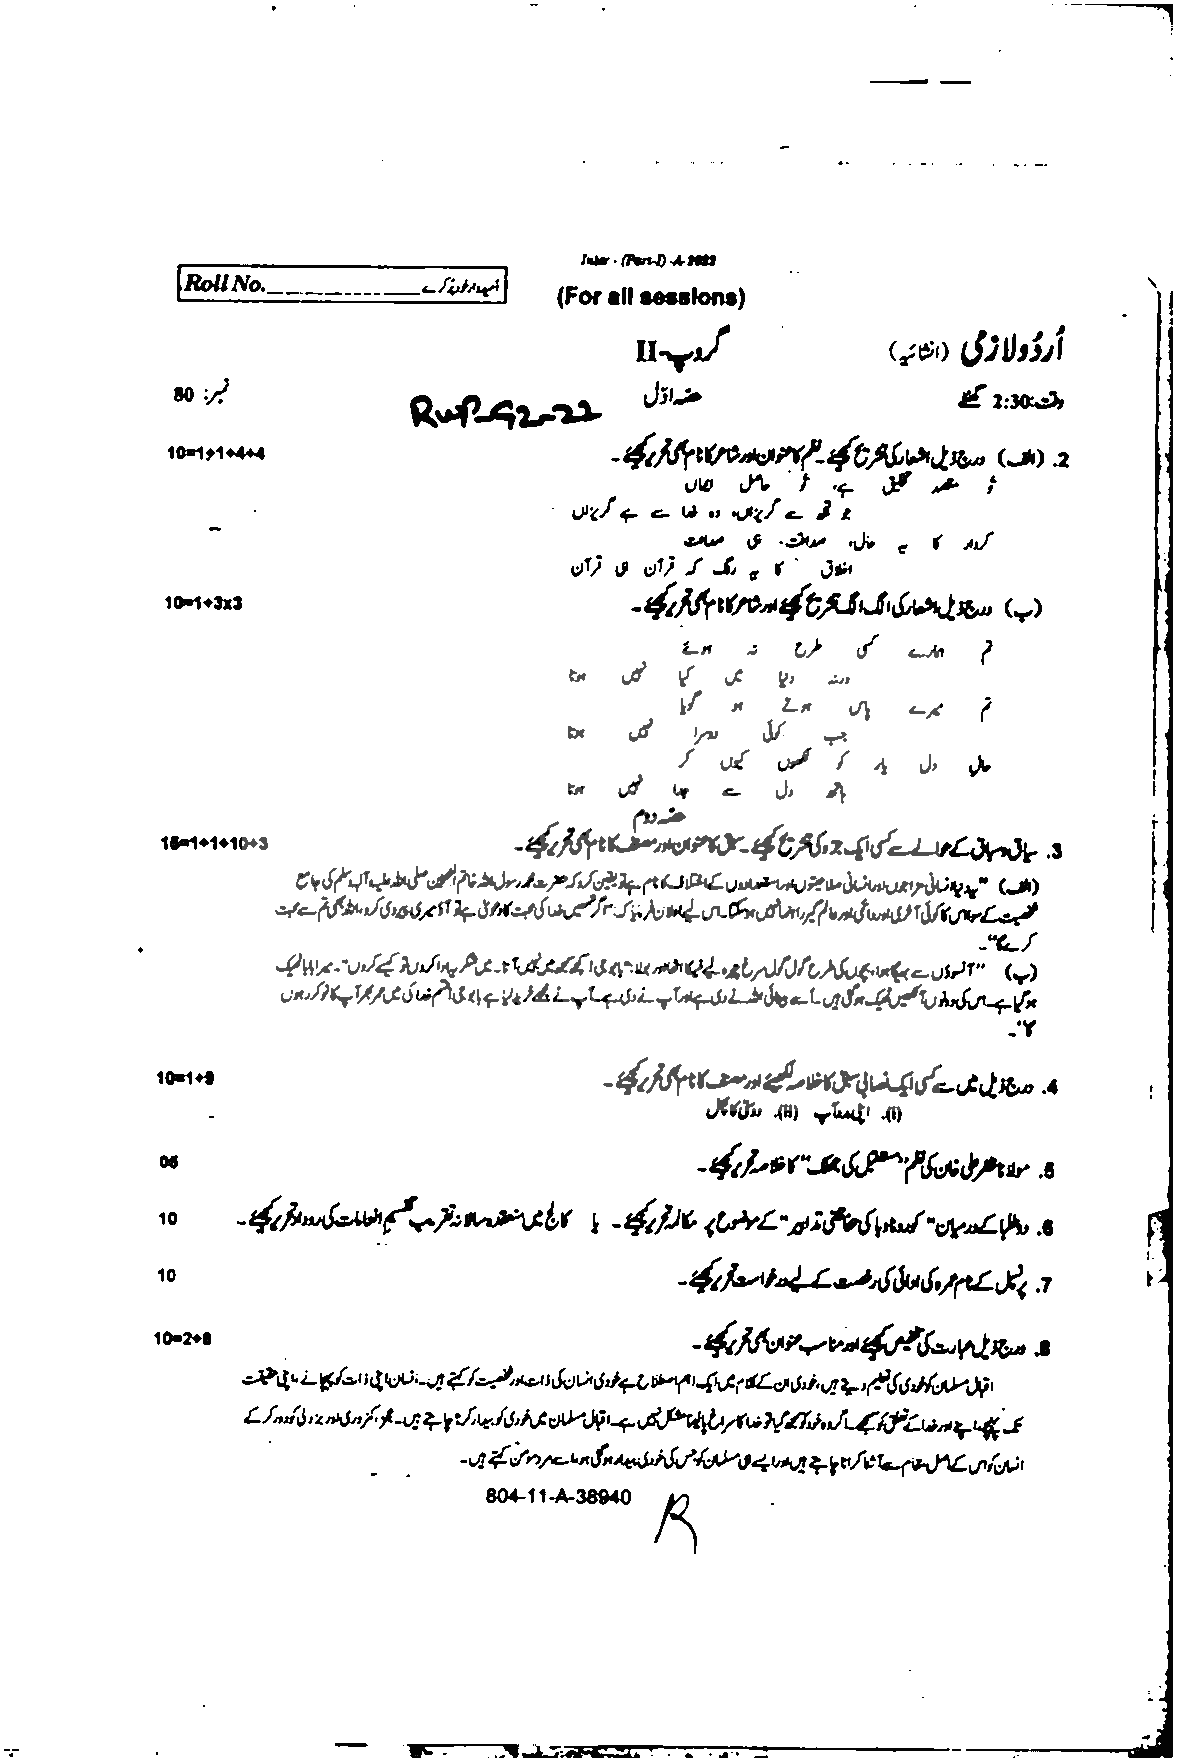 Inter - (Part-I) -A-2022
Roll No. امیدوار خود پُر کرے
(For all sessions)
اُردُو لازمی (انشائیہ) گروپ-II
وقت: 2:30 گھنٹے حصہ اوّل نمبر: 80
RWP-G2-22
2. (الف) درج ذیل اشعار کی تشریح کیجئے۔ نظم کا عنوان اور شاعر کا نام بھی تحریر کیجئے۔ 10=1+1+4+4
تُو مقصدِ تخلیق ہے، تُو حاصلِ ایماں
جو تجھ سے گریزاں، وہ خدا سے ہے گریزاں
کردار کا یہ حال، صداقت ہی صداقت
اخلاق کا یہ رنگ کہ قرآن ہی قرآن
(ب) درج ذیل اشعار کی الگ الگ تشریح کیجئے اور شاعر کا نام بھی تحریر کیجئے۔ 10=1+3x3
تم ہمارے کسی طرح نہ ہوئے
ورنہ دنیا میں کیا نہیں ہوتا
تم میرے پاس ہوتے ہو گویا
جب کوئی دوسرا نہیں ہوتا
حالِ دل یار کو لکھوں کیوں کر
ہاتھ دل سے جدا نہیں ہوتا
حصہ دوم
3. سیاق و سباق کے حوالے سے کسی ایک جزو کی تشریح کیجئے۔ سبق کا عنوان اور مصنف کا نام بھی تحریر کیجئے۔ 15=1+1+10+3
(الف) "یہ دنیا انسانی مزاجوں اور انسانی صلاحیتوں اور استعدادوں کے اختلاف کا نام ہے تو یقین کرو کہ حضرت محمد رسول اللہ خاتم النبیین صلی اللہ علیہ وآلہ وسلم کی جامع
شخصیت کے سوا اس کا کوئی آخری اور دائمی اور عالم گیر راہنما نہیں ہو سکتا۔ اس لیے اعلان فرمایا کہ: "اگر تمہیں خدا کی محبت کا دعویٰ ہے تو آؤ میری پیروی کرو، اللہ بھی تم سے محبت
کرے گا"۔
(ب) "آنسوؤں سے بھیگا ہوا، بچوں کی طرح گول گول سرخ چہرہ لیے فیکا اٹھا اور بولا: "بابو جی! کچھ سمجھ میں نہیں آتا۔ میں شکریہ ادا کروں تو کیسے کروں"۔ میرا بابا ٹھیک
ہو گیا ہے۔ اس کی دونوں آنکھیں ٹھیک ہو گئی ہیں۔ اسے بینائی اللہ نے دی ہے اور آپ نے دی ہے۔ آپ نے مجھے خرید لیا ہے بابو جی! قسم خدا کی میں عمر بھر آپ کا نوکر رہوں
گا"۔
4. درج ذیل میں سے کسی ایک نصابی سبق کا خلاصہ لکھیے اور مصنف کا نام بھی تحریر کیجئے۔ 10=1+9
(i). اپنی مدد آپ (ii). دوستی کا پھل
5. مولانا ظفر علی خان کی نظم "مستقبل کی جھلک" کا خلاصہ تحریر کیجئے۔ 05
6. دو طلبا کے درمیان "کورونا وبا کی حفاظتی تدابیر" کے موضوع پر مکالمہ تحریر کیجئے۔ یا کالج میں منعقدہ سالانہ تقریب تقسیم انعامات کی روداد تحریر کیجئے۔ 10
7. پرنسپل کے نام عمرہ کی ادائی کی رخصت کے لیے درخواست تحریر کیجئے۔ 10
8. درج ذیل عبارت کی تلخیص کیجئے اور مناسب عنوان بھی تحریر کیجئے۔ 10=2+8
اقبال مسلمان کو خودی کی تعلیم دیتے ہیں، خودی ان کے کلام میں ایک اہم اصطلاح ہے خودی انسان کی ذات اور شخصیت کو کہتے ہیں۔ انسان اپنی ذات کو پہچانے، اپنی حقیقت
تک پہنچ جائے اور خدا سے تعلق کو سمجھے۔ اگر وہ خود کو سمجھ گیا تو خدا کا سراغ پانا مشکل نہیں ہے۔ اقبال مسلمان میں خودی کو بیدار کرنا چاہتے ہیں۔ عجز، کمزوری اور بزدلی کو دور کر کے
انسان کو اس کے اصل مقام سے آشنا کرانا چاہتے ہیں اور ایسے ہی مسلمان کو جس کی خودی بیدار ہو گئی ہو، اسے مردِ مومن کہتے ہیں۔
804-11-A-38940
R